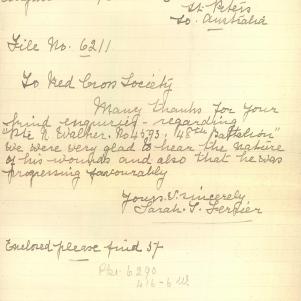 St. Peters
So. Australia
File No. 6211
To Red Cross Society
Many thanks for your
kind enquiries - regarding
"Pte. R. Walker. No 4593. 48th Battalion"
We were very glad to hear the nature
of his wounds and also that he was
progressing favourably
Yours Sincerely
Sarah. S.
Enclosed please find 5/-
Pkt. 6290
4/6-6